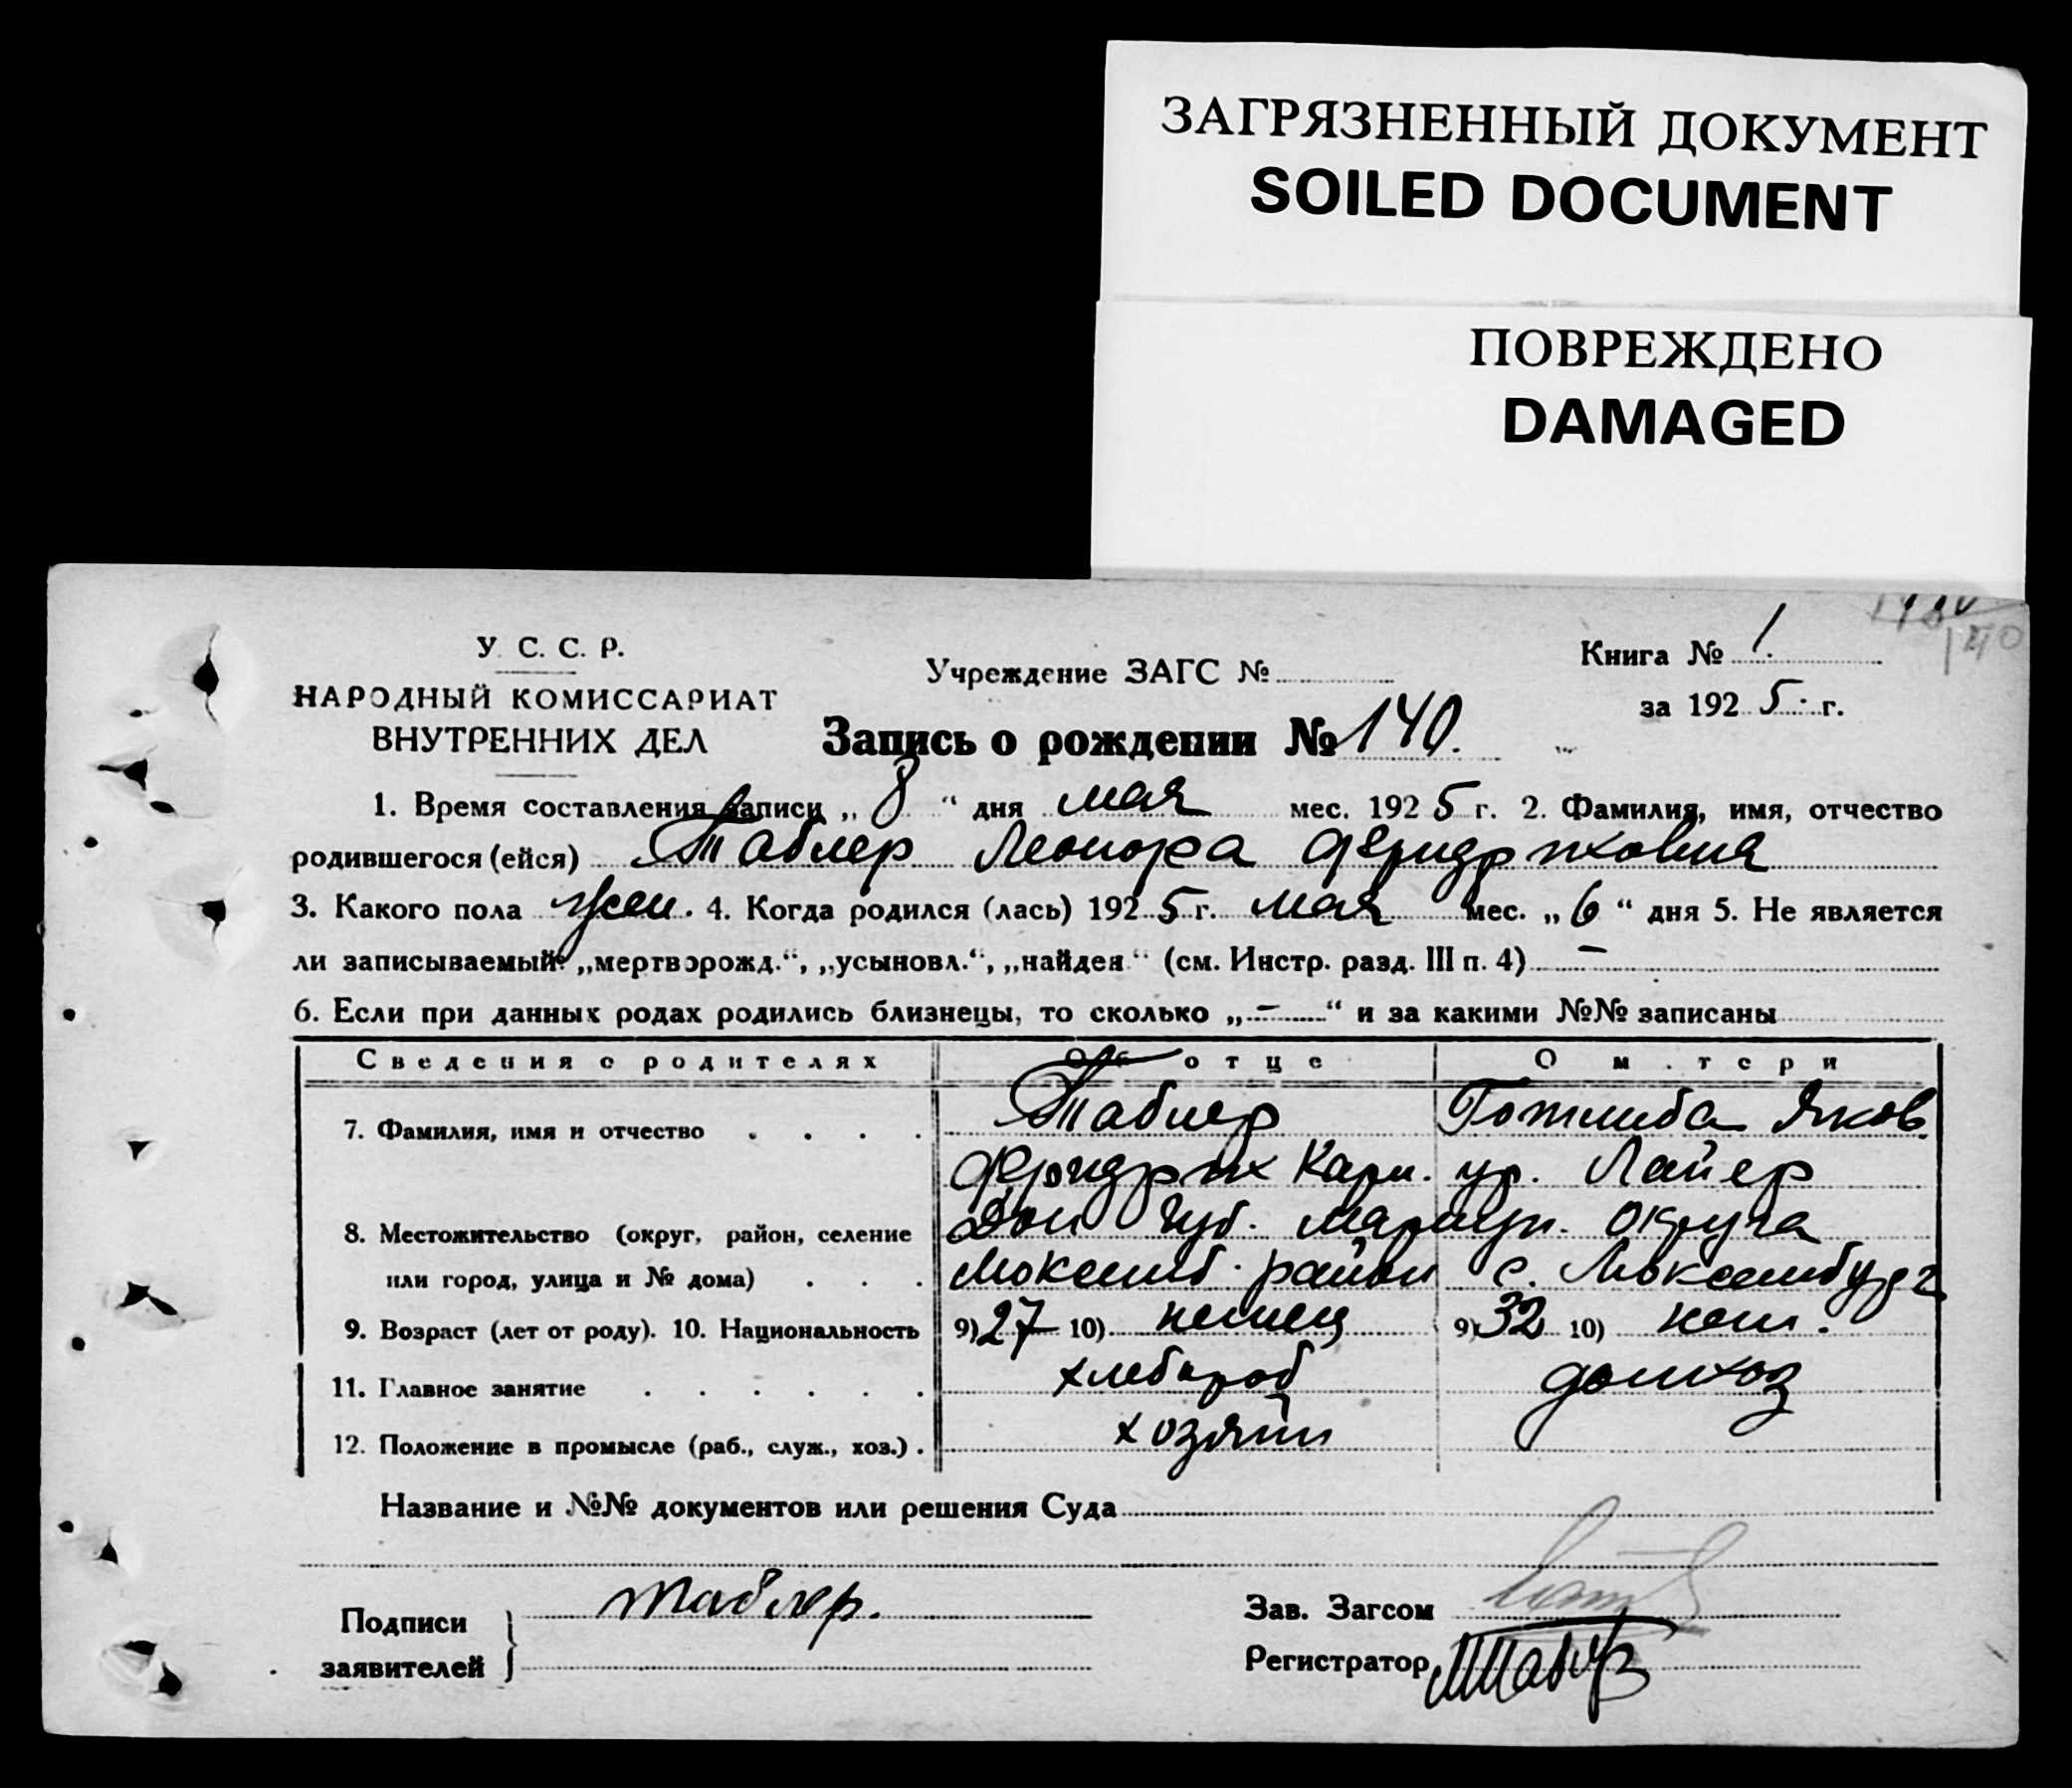 ЗАГРЯЗНЕННЫЙ ДОКУМЕНТ
SOILED DOCUMENT
ПОВРЕЖДЕНО
DAMAGED
140
У. С. С. Р.
НАРОДНЫЙ КОМИССАРИАТ
ВНУТРЕННИХ ДЕЛ
Учреждение ЗАГС №
Книга № 1.
за 1925 г.
Запись о рождении № 140.
1. Время составления записи „ 8 “ дня мая мес. 1925 г. 2. Фамилия, имя, отчество
родившегося (ейся) Таблер Леонора Фридриховна
3. Какого пола жен. 4. Когда родился (лась) 1925 г. мая мес. „ 6 “ дня 5. Не является
ли записываемый: „мертворожд.“, „усыновл.“, „найден“ (см. Инстр. разд. III п. 4) –
6. Если при данных родах родились близнецы, то сколько „ – “ и за какими №№ записаны
Сведения о родителях Об отце О м.тери
7. Фамилия, имя и отчество . . . . Таблер Готлиба Яков.
Фридрих Карл. ур. Лайер
8. Местожительство (округ, район, селение Дон губ. Мариуп. округа
или город, улица и № дома) . . . Люксемб. район с. Люксембург
9. Возраст (лет от роду). 10. Национальность 9) 27 10) немец 9) 32 10) нем.
11. Главное занятие . . . . . . хлебороб домхоз
12. Положение в промысле (раб., служ., хоз.) . хозяин
Название и №№ документов или решения Суда
Подписи
заявителей } Таблер.
Зав. Загсом
Регистратор